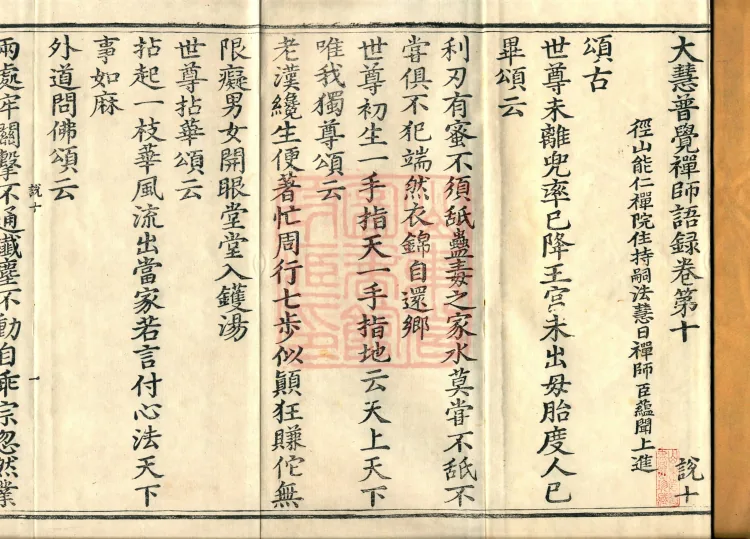 大慧普覺禪師語録卷第十
說十
徑山能仁禪院住持嗣法慧日禪師臣蘊聞上進
頌古
世尊未離兜率已降王宮未出母胎度人已
畢頌云
利刃有蜜不須舐蠱毒之家水莫甞不舐不
甞俱不犯端然衣錦自還鄉
世尊初生一手指天一手指地云天上天下
唯我獨尊頌云
老漢纔生便著忙周行七步似顛狂賺佗無
限癡男女開眼堂堂入鑊湯
世尊拈華頌云
拈起一枝華風流出當家若言付心法天下
事如麻
外道問佛頌云
說十
一
兩處牢關擊不通纖塵不動自乖宗忽然業